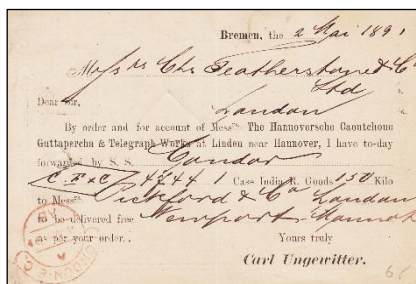 Bremen, the 2 Mai 1891
Messrs Chs Featherstone & Co
Ltd
Dear Sir,
London
By order and for account of Messrs. The Hannoversche Caoutchouc
Guttapercha & Telegraph Works at Linden near Hannover, I have to-day
forwarded by S. S. Condor
C. F & C 4344 1 Case India R. Goods 150 Kilo
to Messrs. Pickford & Co London
to be delivered free Newport
as per your order. Yours truly
Carl Ungewitter.
LONDON E.C.
61